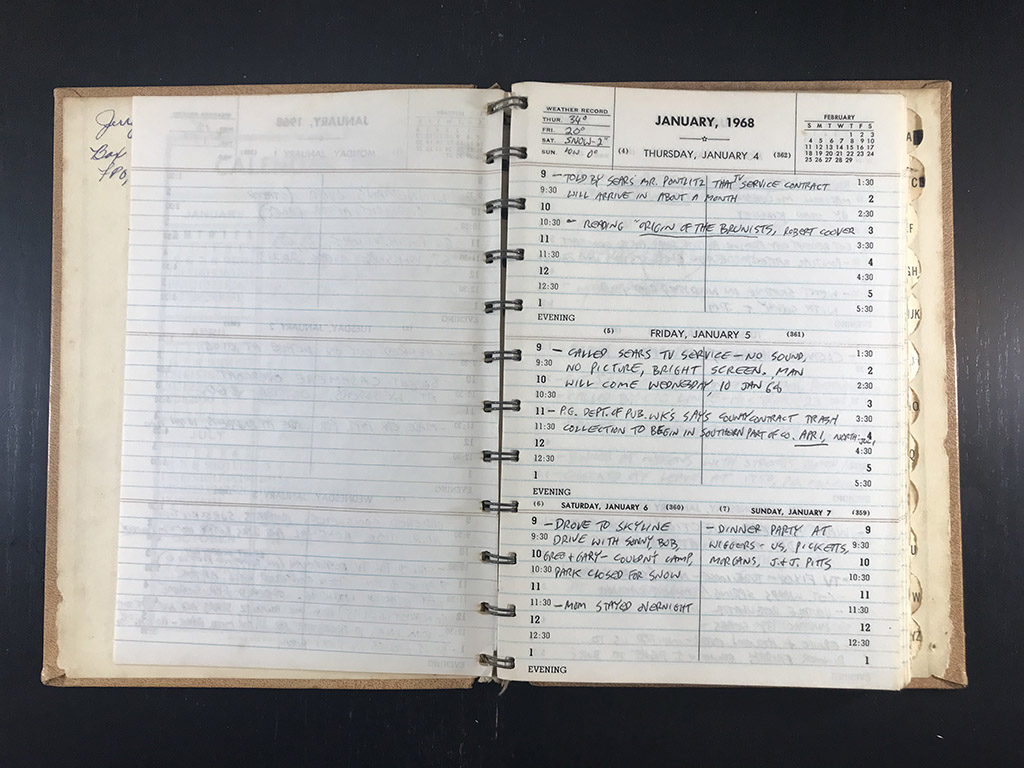 Box
FPO,
WEATHER RECORD
THUR. 34°
FRI. 20°
SAT. SNOW-2"
SUN. LOW 0°
JANUARY, 1968
(4) THURSDAY, JANUARY 4 (362)
FEBRUARY
S M T W T F S
1 2 3
4 5 6 7 8 9 10
11 12 13 14 15 16 17
18 19 20 21 22 23 24
25 26 27 28 29
9 - TOLD BY SEARS' MR. PONTLITZ THAT TV SERVICE CONTRACT 1:30
9:30 WILL ARRIVE IN ABOUT A MONTH 2
10 2:30
10:30 - READING "ORIGIN OF THE BRUNISTS, ROBERT COOVER 3
11 3:30
11:30 4
12 4:30
12:30 5
1 5:30
EVENING
(5) FRIDAY, JANUARY 5 (361)
9 - CALLED SEARS TV SERVICE - NO SOUND, 1:30
9:30 NO PICTURE, BRIGHT SCREEN. MAN 2
10 WILL COME WEDNESDAY, 10 JAN 68 2:30
10:30 3
11 - P.G. DEPT. OF PUB. WK'S SAYS COUNTY CONTRACT TRASH 3:30
11:30 COLLECTION TO BEGIN IN SOUTHERN PART OF CO. APR 1, NORTH-JUL 1 4
12 4:30
12:30 5
1 5:30
EVENING
(6) SATURDAY, JANUARY 6 (360)
9 - DROVE TO SKYLINE
9:30 DRIVE WITH SONNY, BOB,
10 GREG & GARY - COULDN'T CAMP,
10:30 PARK CLOSED FOR SNOW
11
11:30 - MOM STAYED OVERNIGHT
12
12:30
1
EVENING
(7) SUNDAY, JANUARY 7 (359)
- DINNER PARTY AT 9
WIGGERS - US, PICKETTS, 9:30
MORGANS, J.&J. PITTS 10
10:30
11
11:30
12
12:30
1
A
C
F
GH
JK
Q
U
W
YZ